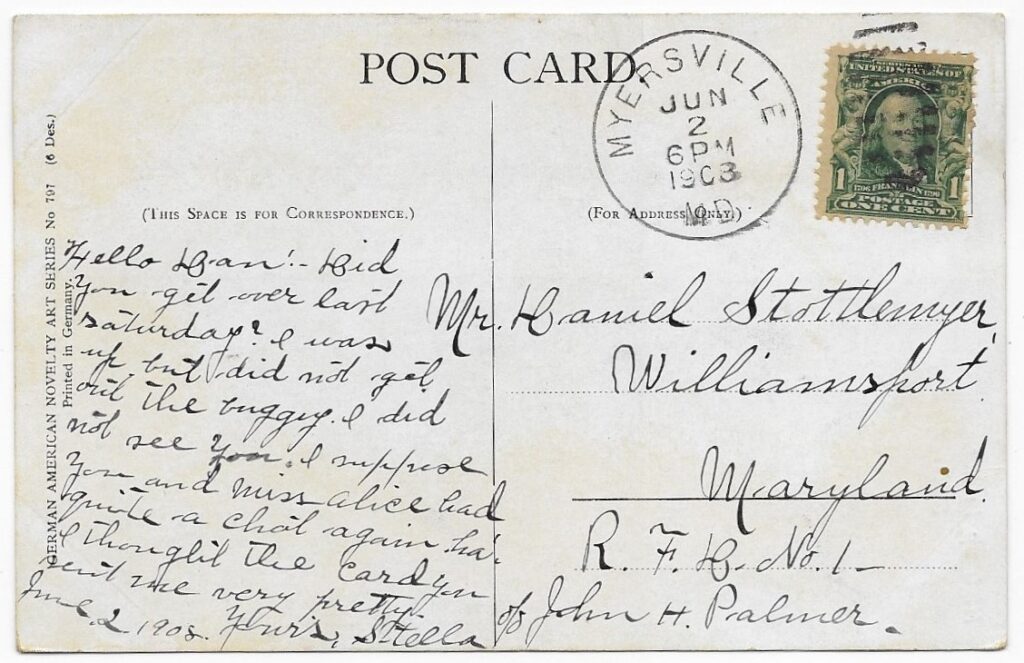 POST CARD
MYERSVILLE
JUN
2
6 PM
1908
MD.
SERIES OF 1902
UNITED STATES OF
AMERICA
1 1706 FRANKLIN 1790 1
POSTAGE
ONE CENT
GERMAN AMERICAN NOVELTY ART SERIES No 797 (6 Des.)
Printed in Germany.
(THIS SPACE IS FOR CORRESPONDENCE.)
Hello Dan!- Did
you get over last
saturday? I was
up, but did not get
out the buggy. I did
not see you. I suppose
you and miss alice had
quite a chat again. ha!
I thought the card you
sent me very pretty.
June. 2, 1908. Yours, Stella
(FOR ADDRESS ONLY.)
Mr. Daniel Stottlemyer,
Williamsport
Maryland.
R. F. D. No. 1-
c/o John H. Palmer.